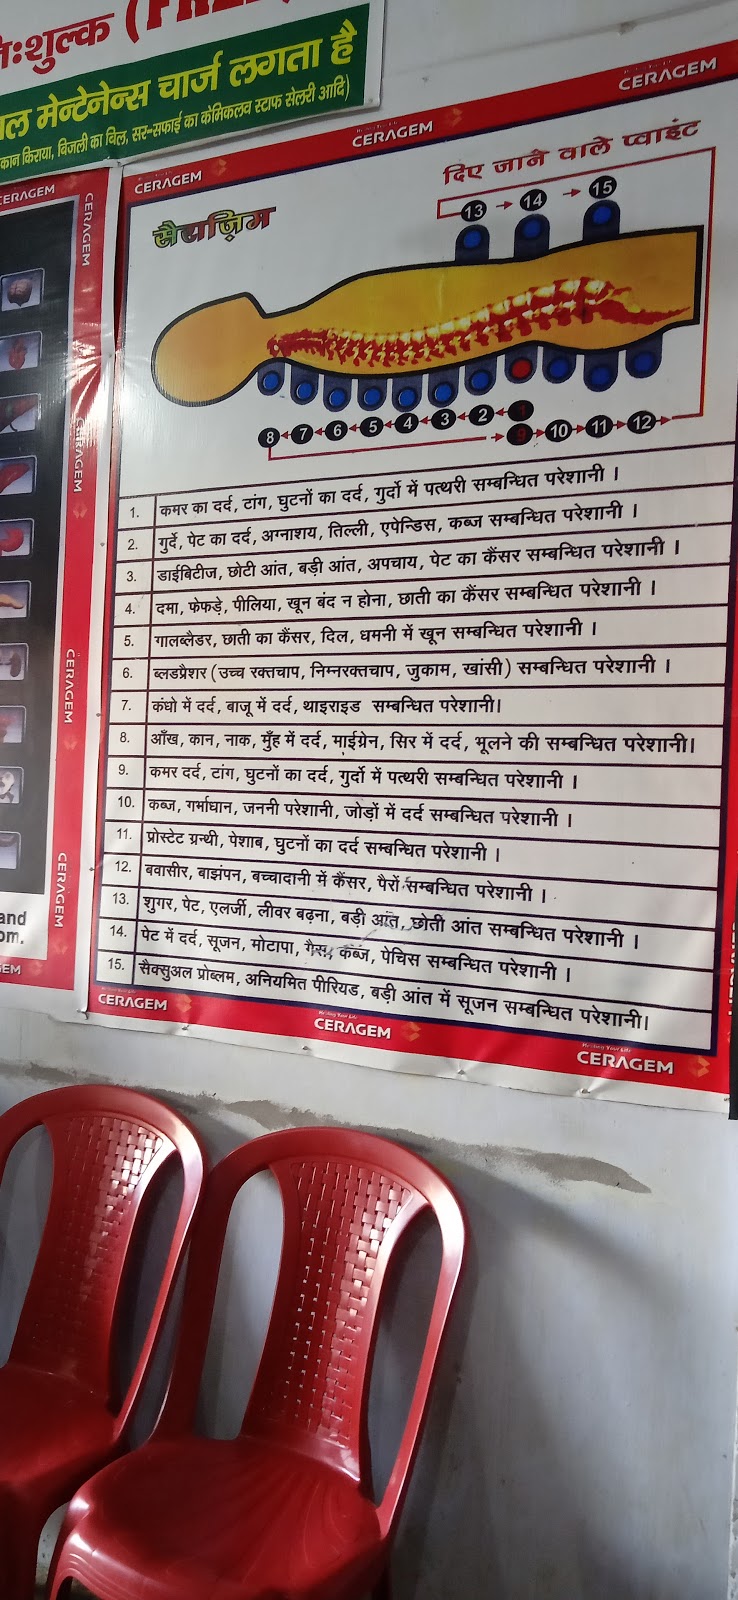 नि:शुल्क
मेन्टेनेन्स चार्ज लगता है
किराया, बिजली का बिल, सर-सफाई का केमिकलव स्टाफ सेलरी आदि)
CERAGEM
CERAGEM
CERAGEM
CERAGEM
दिए जाने वाले प्वाइंट
सैराज़िम
13 → 14 → 15
8 7 6 5 4 3 2 1
9 10 11 12
1. कमर का दर्द, टांग, घुटनों का दर्द, गुर्दो में पत्थरी सम्बन्धित परेशानी ।
2. गुर्दे, पेट का दर्द, अग्नाशय, तिल्ली, एपेन्डिस, कब्ज सम्बन्धित परेशानी ।
3. डाईबिटीज, छोटी आंत, बड़ी आंत, अपचाय, पेट का कैंसर सम्बन्धित परेशानी ।
4. दमा, फेफड़े, पीलिया, खून बंद न होना, छाती का कैंसर सम्बन्धित परेशानी ।
5. गालब्लैडर, छाती का कैंसर, दिल, धमनी में खून सम्बन्धित परेशानी ।
6. ब्लडप्रैशर (उच्च रक्तचाप, निम्नरक्तचाप, जुकाम, खांसी) सम्बन्धित परेशानी ।
7. कंधो में दर्द, बाजू में दर्द, थाइराइड सम्बन्धित परेशानी।
8. आँख, कान, नाक, मुँह में दर्द, माईग्रेन, सिर में दर्द, भूलने की सम्बन्धित परेशानी।
9. कमर दर्द, टांग, घुटनों का दर्द, गुर्दो में पत्थरी सम्बन्धित परेशानी ।
10. कब्ज, गर्भाधान, जननी परेशानी, जोड़ों में दर्द सम्बन्धित परेशानी ।
11. प्रोस्टेट ग्रन्थी, पेशाब, घुटनों का दर्द सम्बन्धित परेशानी ।
12. बवासीर, बाझंपन, बच्चादानी में कैंसर, पैरों सम्बन्धित परेशानी ।
13. शुगर, पेट, एलर्जी, लीवर बढ़ना, बड़ी आंत, छोती आंत सम्बन्धित परेशानी ।
14. पेट में दर्द, सूजन, मोटापा, गैस, कब्ज, पेचिस सम्बन्धित परेशानी ।
15. सैक्सुअल प्रोब्लम, अनियमित पीरियड, बड़ी आंत में सूजन सम्बन्धित परेशानी।
CERAGEM
CERAGEM
CERAGEM
CERAGEM
CERAGEM
CERAGEM
CERAGEM
and